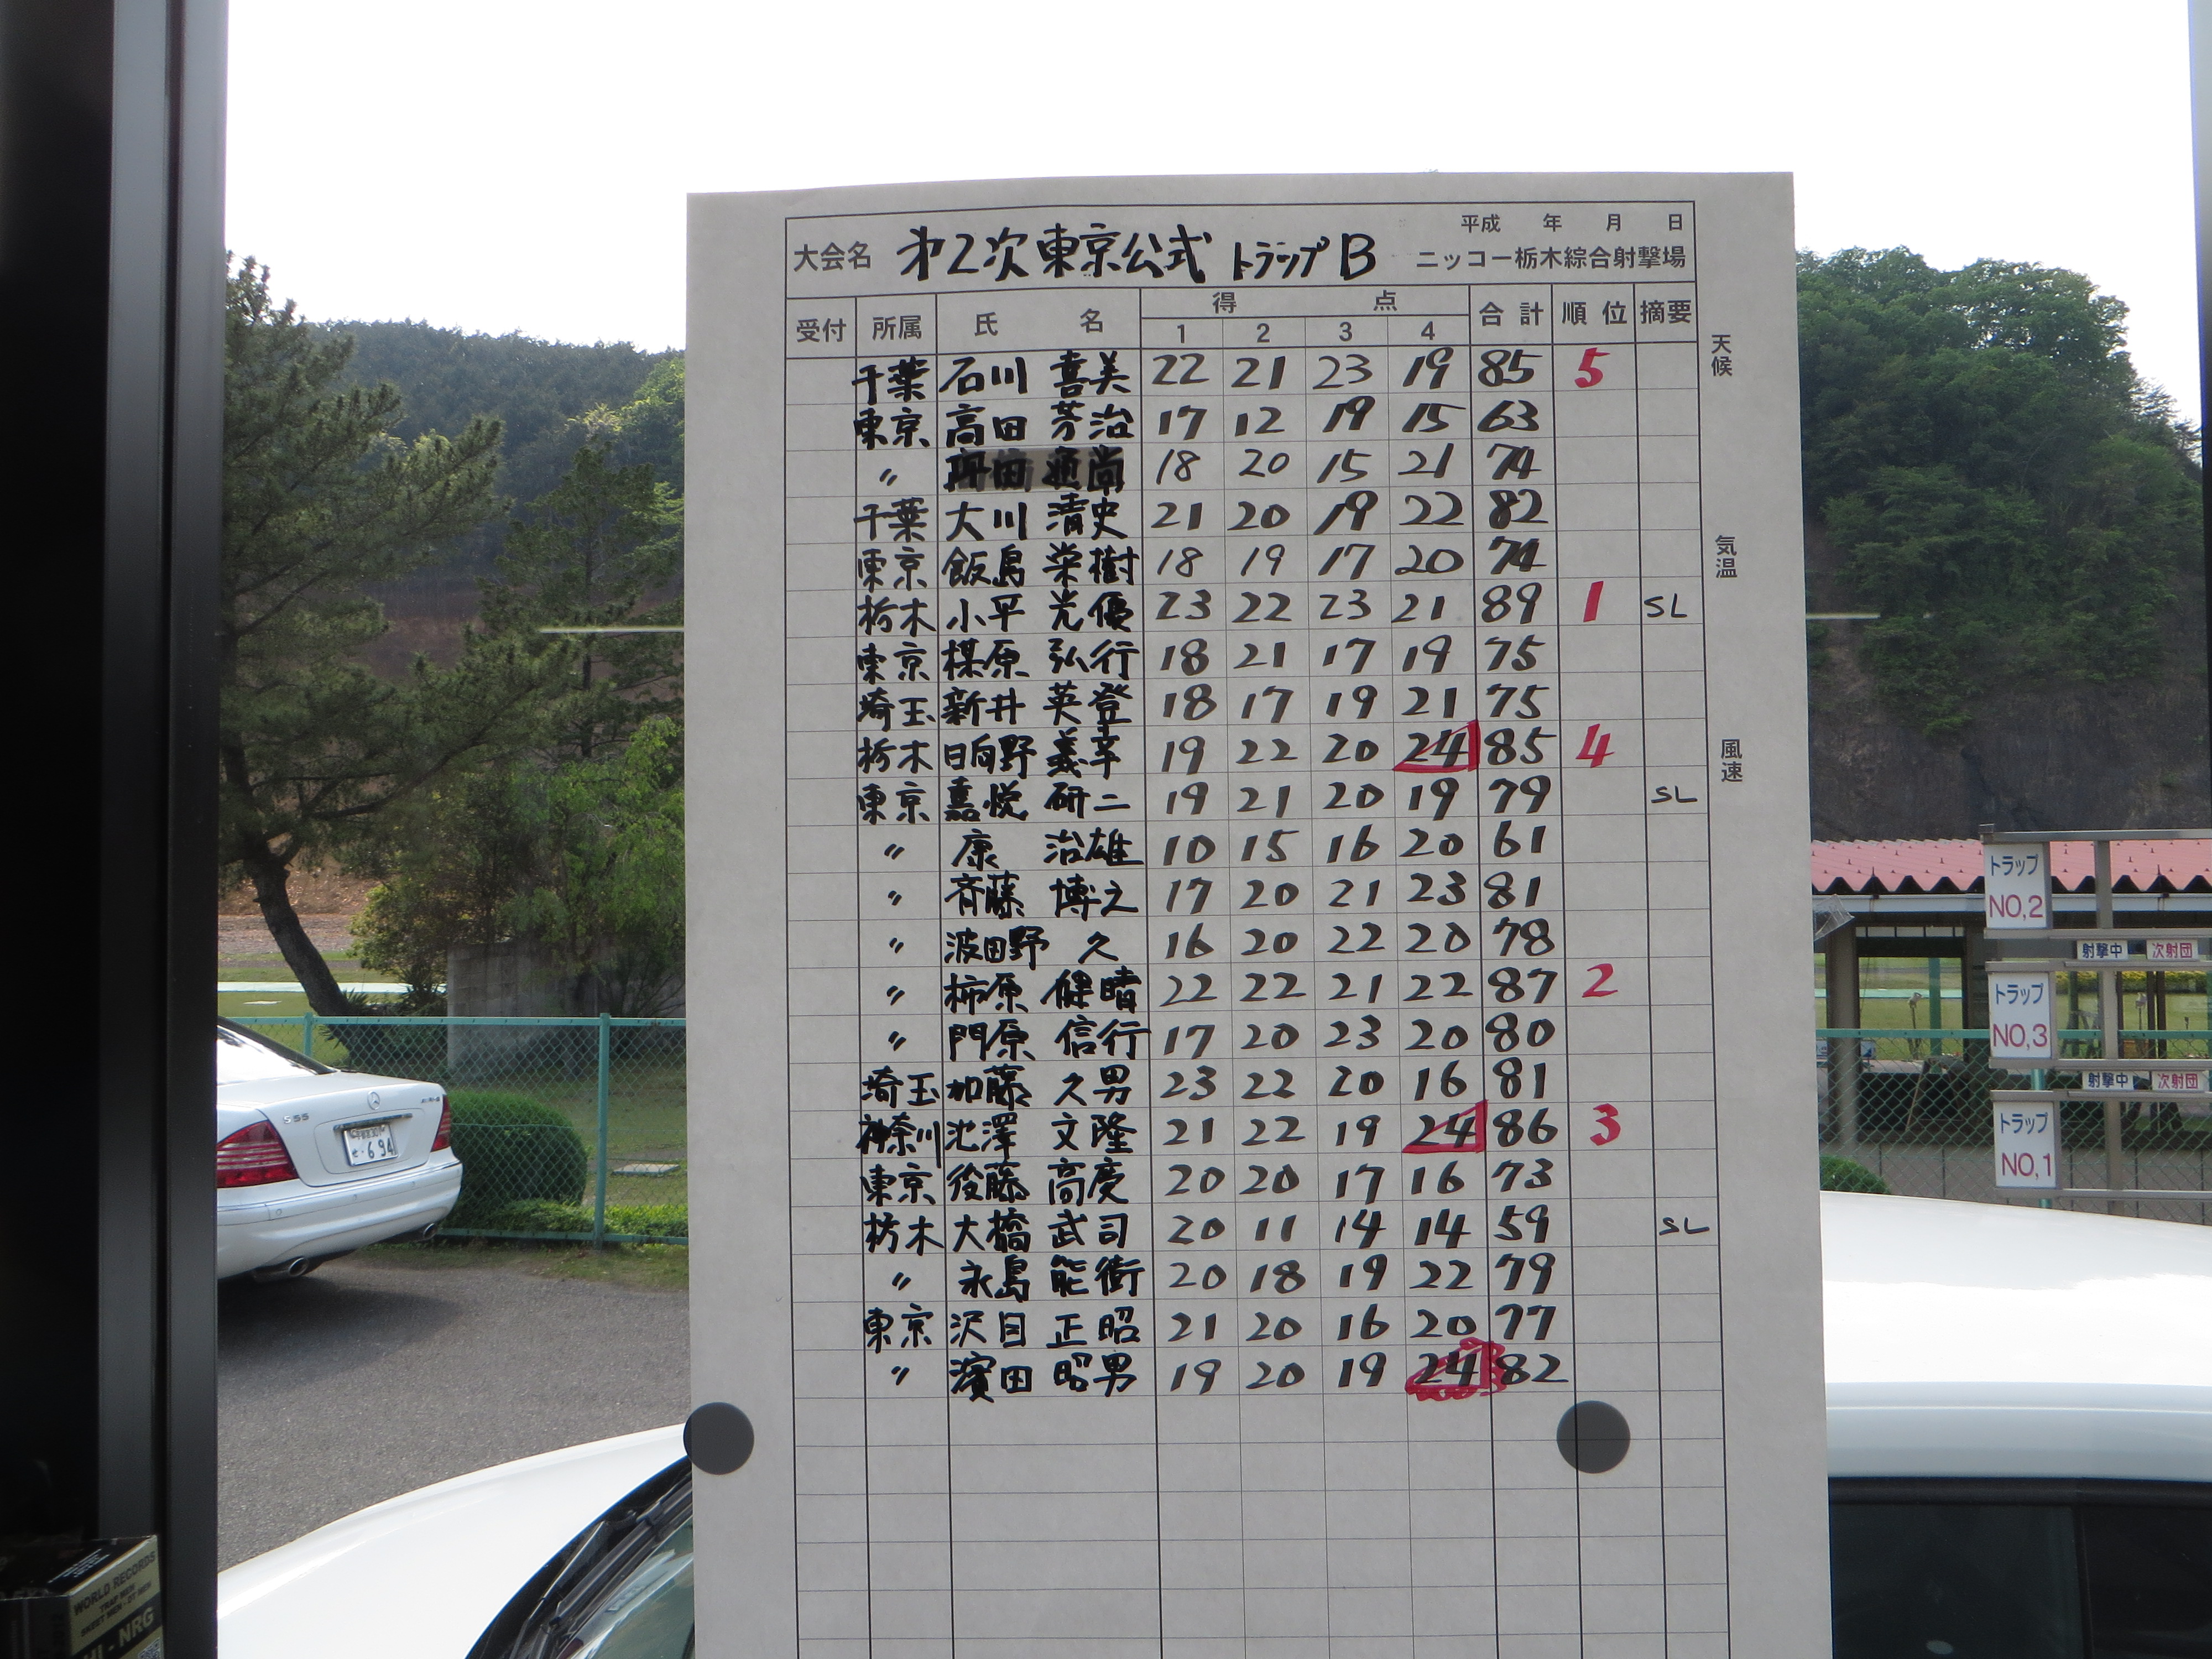 平成 年 月 日
大会名 才2次東京公式 トラップB ニッコー栃木綜合射撃場
受付 所属 氏 名 得 点 合計 順位 摘要
1 2 3 4
千葉 石川 喜美 22 21 23 19 85 5
東京 高田 芳治 17 12 19 15 63
〃 18 20 15 21 74
千葉 大川 清史 21 20 19 22 82
東京 飯島 栄樹 18 19 17 20 74
栃木 小平 光優 23 22 23 21 89 1 SL
東京 楳原 弘行 18 21 17 19 75
埼玉 新井 英登 18 17 19 21 75
栃木 日向野 義幸 19 22 20 24 85 4
東京 嘉悦 研二 19 21 20 19 79 SL
〃 康 治雄 10 15 16 20 61
〃 斉藤 博之 17 20 21 23 81
〃 波田野 久 16 20 22 20 78
〃 柿原 健晴 22 22 21 22 87 2
〃 門原 信行 17 20 23 20 80
埼玉 加藤 久男 23 22 20 16 81
神奈川 池澤 文隆 21 22 19 24 86 3
東京 後藤 高慶 20 20 17 16 73
栃木 大橋 武司 20 11 14 14 59 SL
〃 永島 能街 20 18 19 22 79
東京 沢目 正昭 21 20 16 20 77
〃 濱田 昭男 19 20 19 24 82
天候
気温
風速
トラップ
NO,2
射撃中 次射団
トラップ
NO,3
射撃中 次射団
トラップ
NO,1
S55
694
WORLD RECORDS